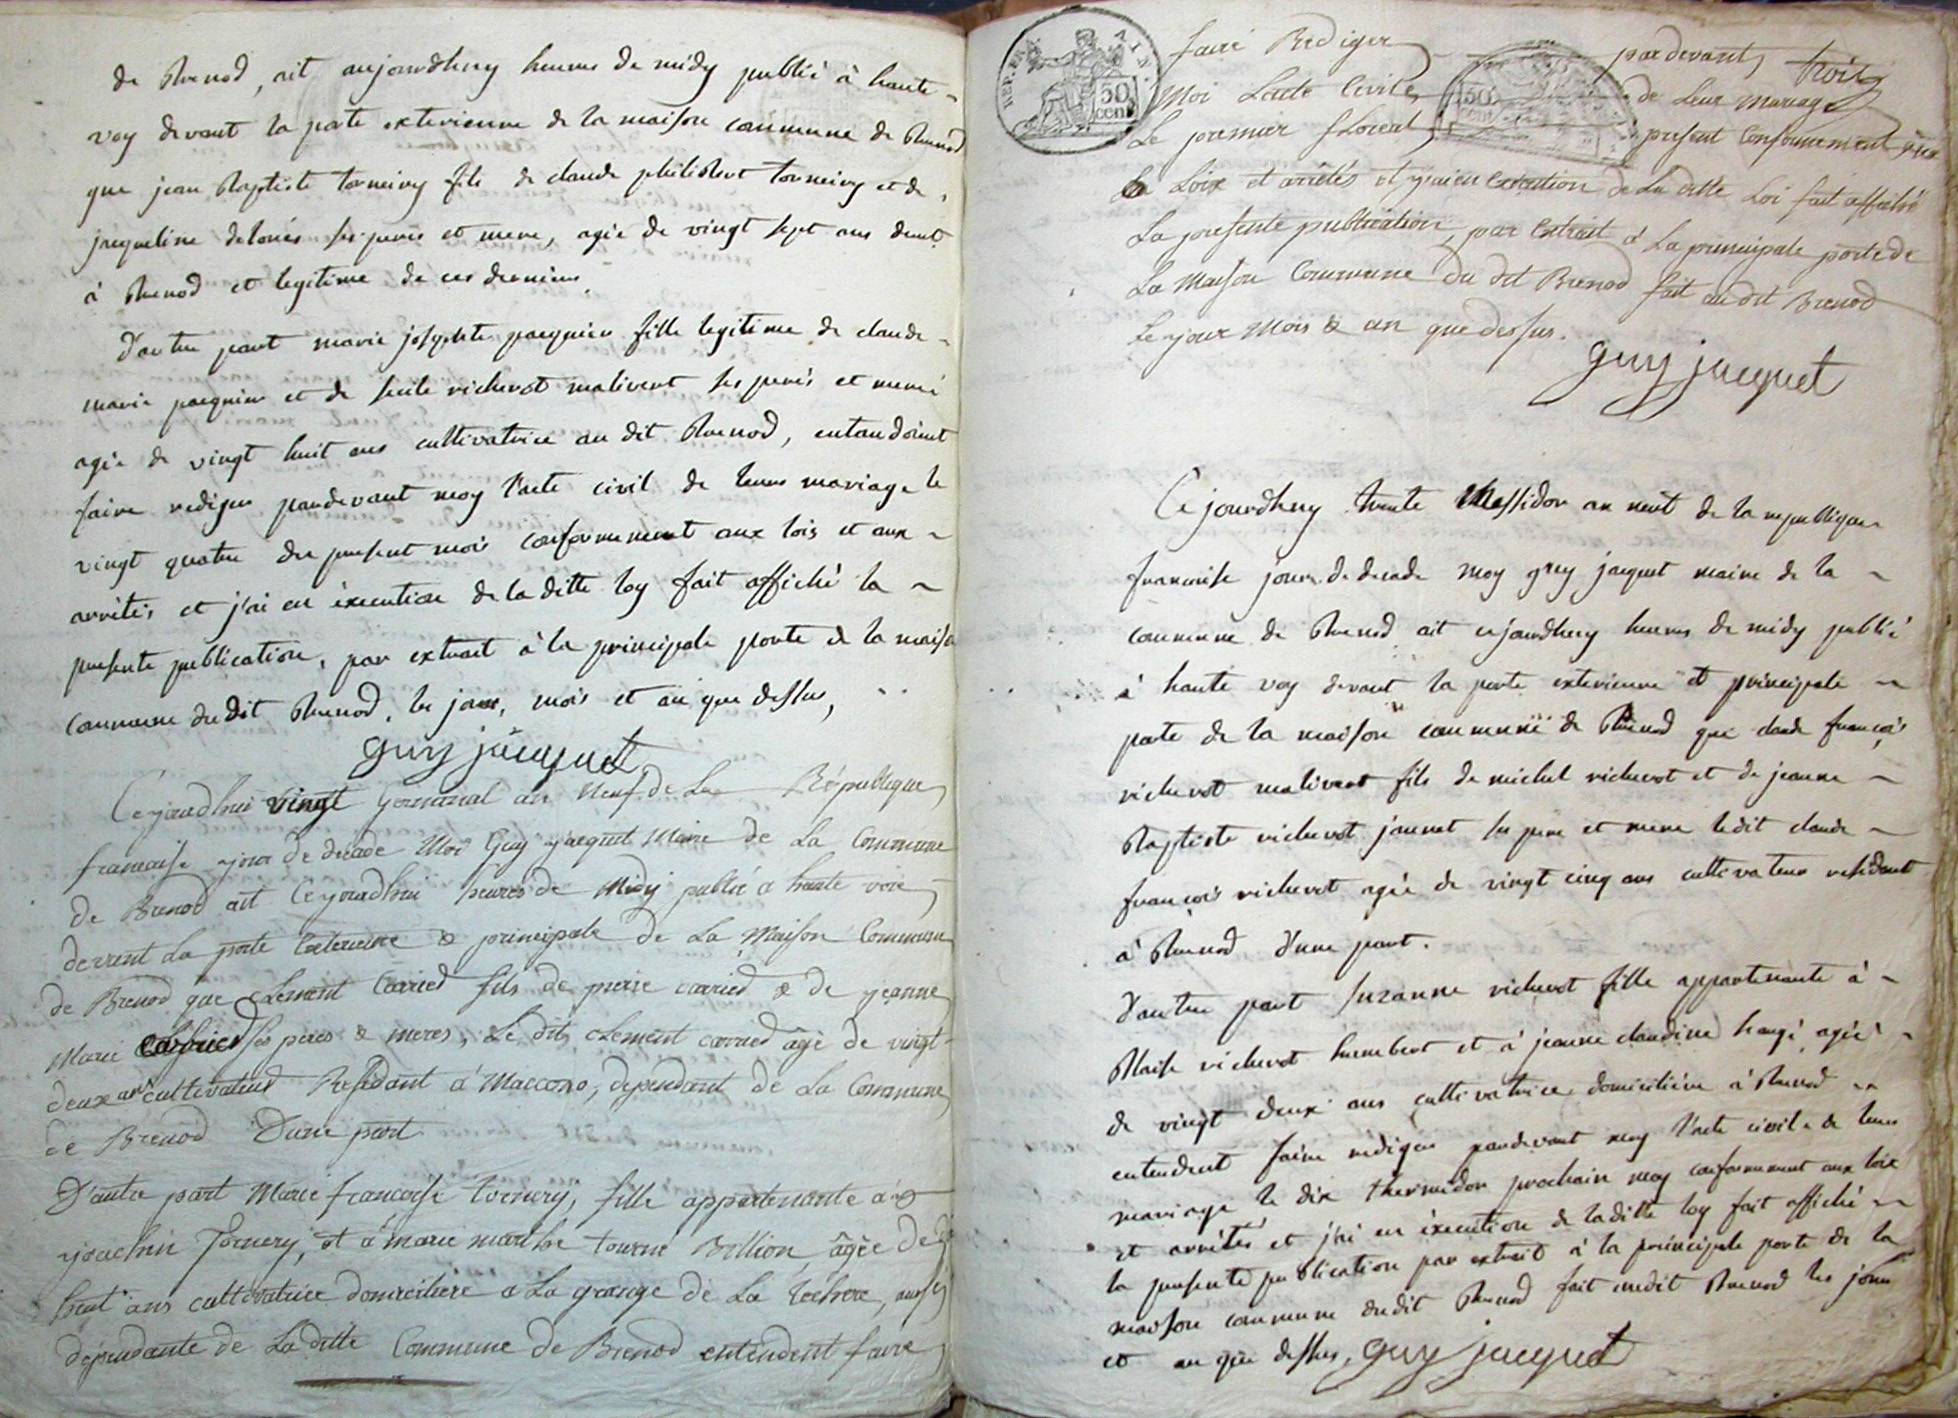 de Brenod, ait aujourdhuy heures de midy publié à haute
voy devant la porte exterieure de la maison commune de Brenod
que jean Baptiste torneiry fils de claude philibert torneiry et de
jacqueline deloués ses peres et mere, agée de vingt sept ans demt
à Brenod et legitime de ces derniers
D'autre part marie josephte pacquien fille legitime de claude
marie pacquien et de richerot malivert ses perés et meré
agée de vingt huit ans cultivatrice au dit Brenod, entandoient
faire rediger pardevant moy l'acte civil de leurs mariage le
vingt quatre du present mois conformement aux lois et aux
arrêtés et j'ai en éxecution de la ditte loy fait affiché la
presente publication, par extrait à la principale porte de la maison
commune dudit Brenod, les jour, mois et an que dessus,
guy jacquet
Cejourdhui vingt Germinal an neuf de La République
francaise jour de decade Moi Guy jacquet Maire de La Commune
de Brenod ait Cejourdhui heures de Midy publié a haute voie
devent La porte Exterieure & principale de La Maison Commune
de Brenod que clement Carried fils de pierre carried & de jeanne
Marie ses peres & meres, Le dit clement carried âgé de vingt
deux ans cultivateur Residant a Macconod, dependant de La Commune
de Brenod D'une part
D'autre part Marie francoise tornery, fille appartenante à
joachin Tornery, et à marie marthe tourné Billion, âgée de
huit ans cultivatrice domiciliere a La grange de La aussy
dépendante de Laditte Commune de Brenod entendent faire
faire Rediger pardevant trois
Moi Lacte Civile de Leur mariage
Le premier floreal present Conformement aux
Loix et arrêtés et j'ai en Execution de La ditte Loi fait affiché
La presente publication, par Extrait à La principale porte de
La Maison Commune du dit Brenod fait au dit Brenod
Le jour Mois & an que dessus.
guy jacquet
Ce jourdhuy trente Messidor an neuf de la republique
francoise jour de decade moy guy jacquet maire de la
commune de Brenod ait cejourdhuy heures de midy publié
à haute voy devant la porte exterieure et principale
porte de la maison commune de Brenod que claude françois
richerot malivert fils de michel richerot et de jeanne
Baptiste richerot jannet ses pere et mere ledit claude
françois richerot agée de vingt cinq ans cultivateur residant
à Brenod d'une part.
D'autre part suzanne richerot fille appartenante à
Blaise richerot humbert et à jeanne claudine hugé, agée
de vingt deux ans cultivatrice domiciliére à Brenod
entendent faire rédiger pardevant moy l'acte civil de leur
mariage le dix thermidor prochain moy conformement aux loix
et arrêtés et j'ai en éxecution de laditte loy fait affiché
la presente publication par extrait à la principale porte de la
maison commune dudit Brenod fait audit Brenod les jour
et an que dessus, guy jacquet